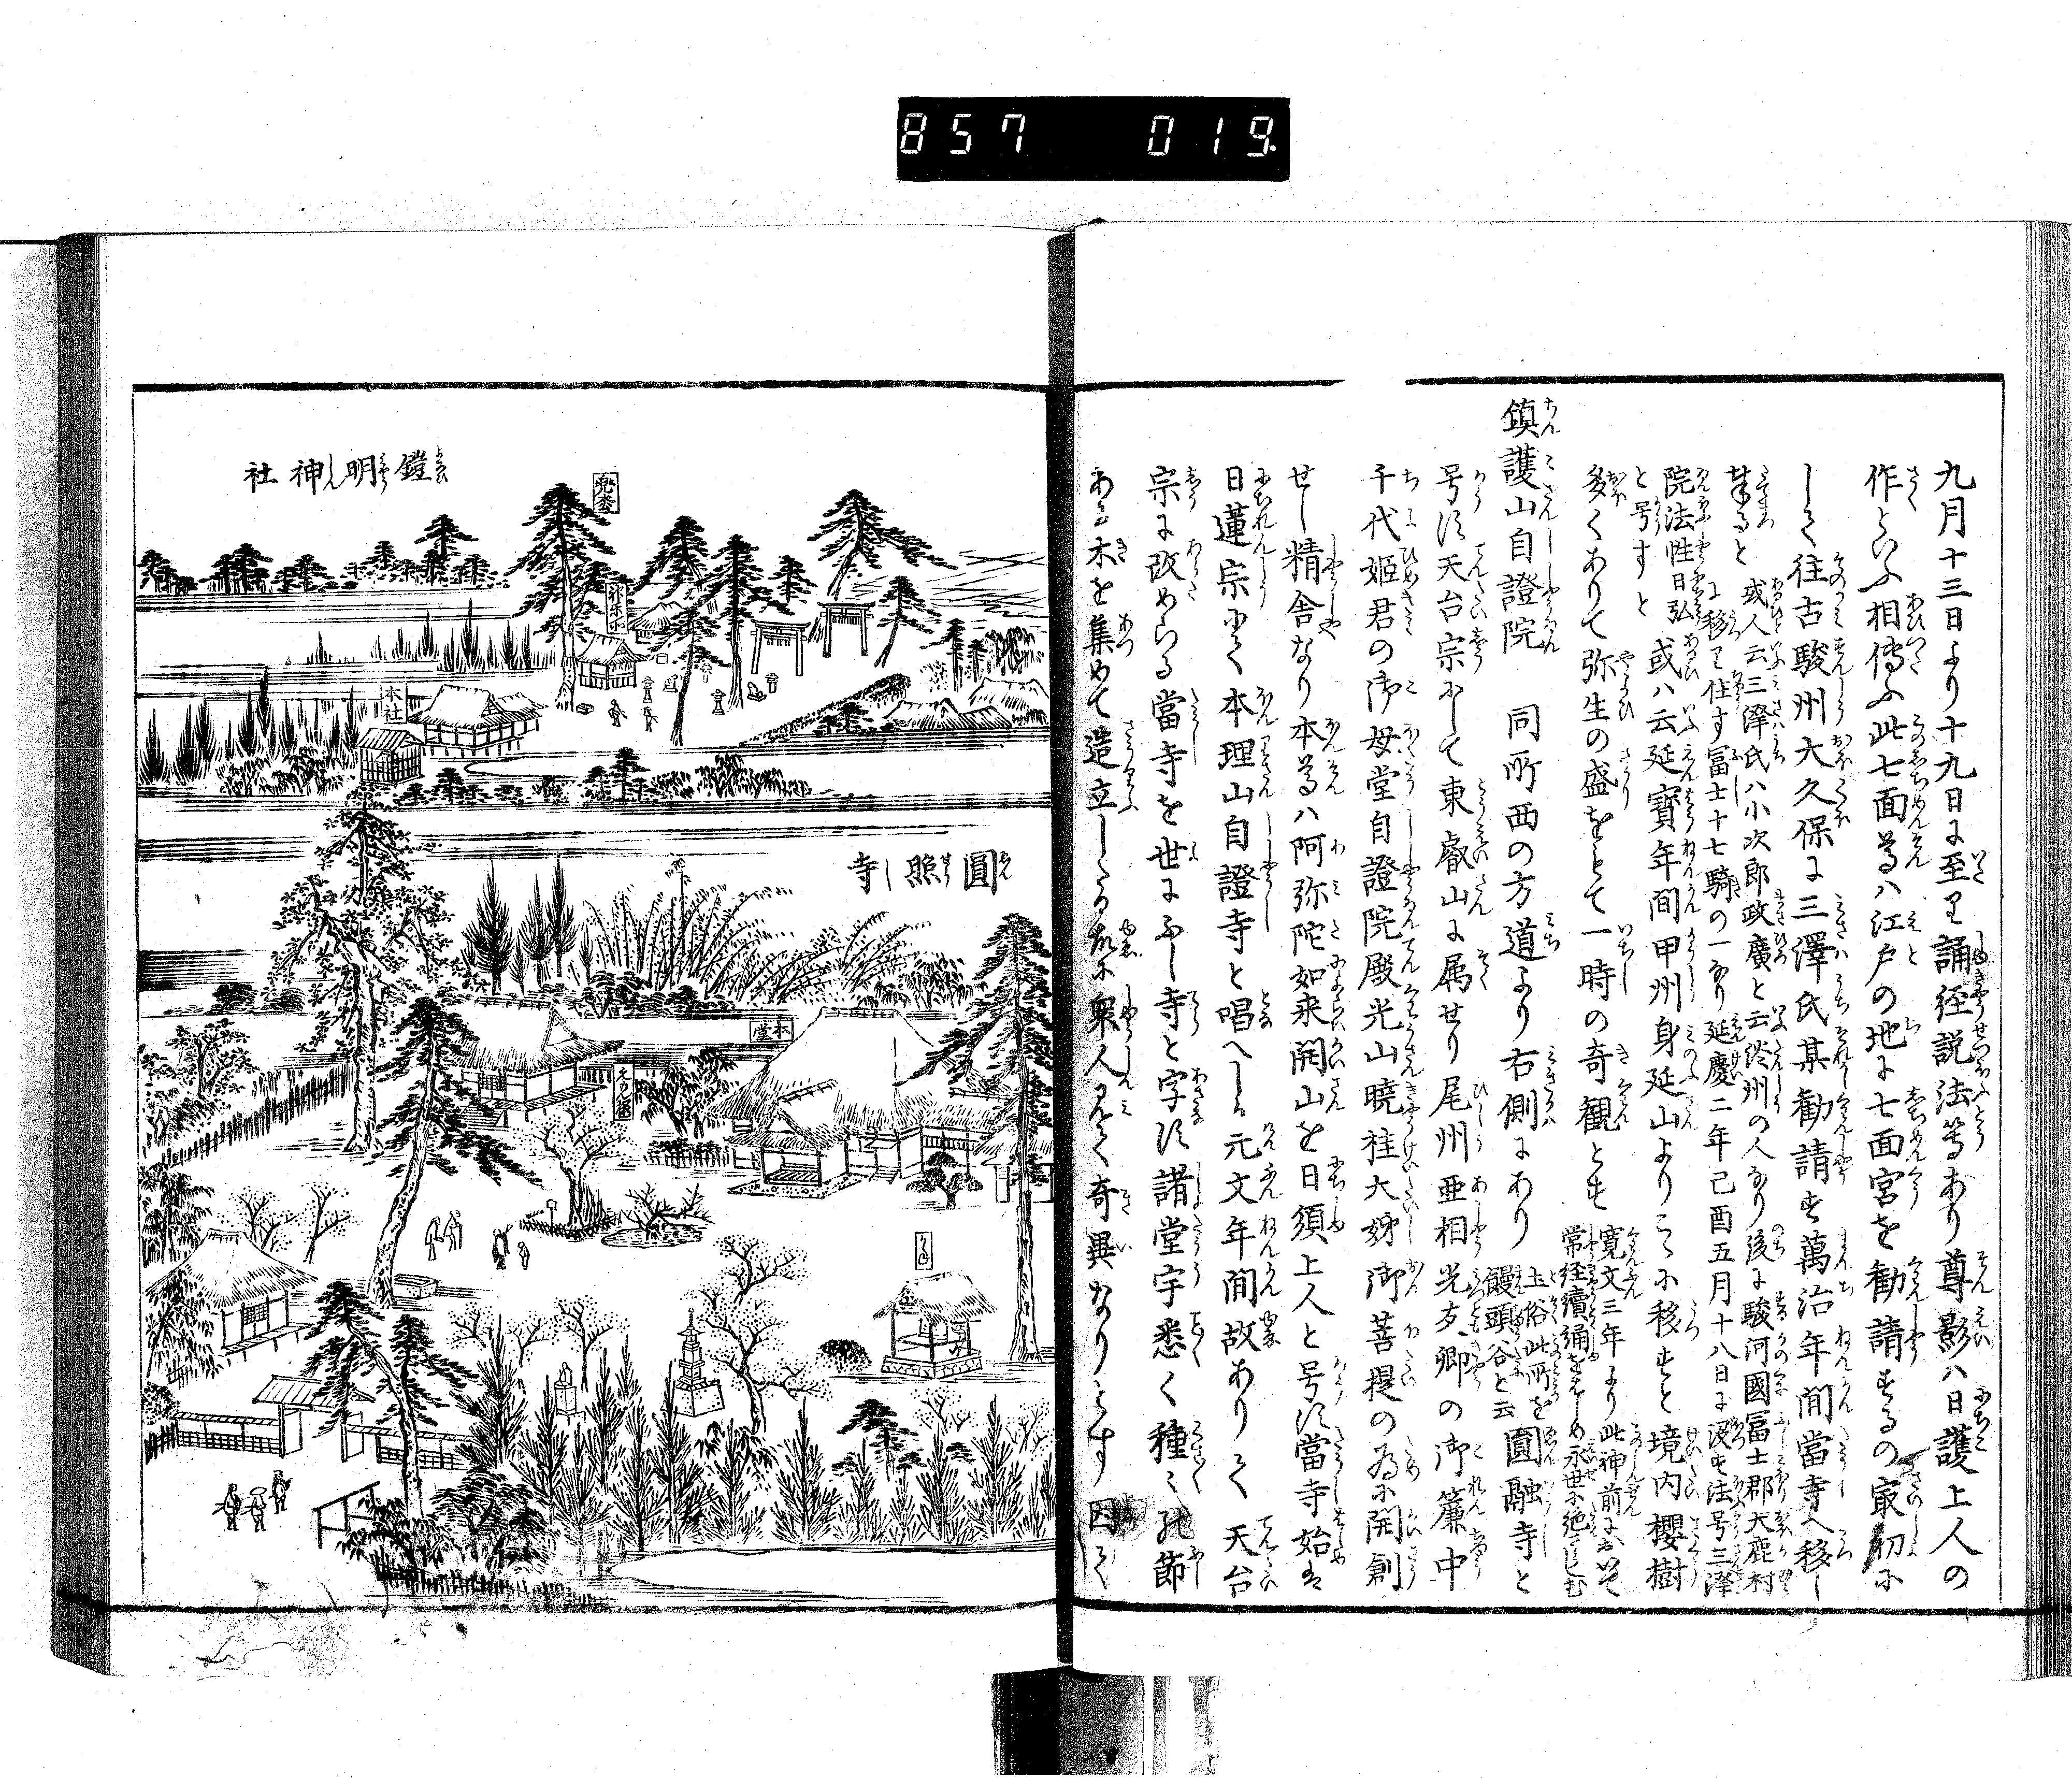 857 019
九月十三日より十九日に至り誦経説法等あり尊影ハ日護上人の
作といふ相傳ふ此七面尊ハ江戸の地に七面宮を勧請するの最初に
して往古駿州大久保に三澤氏某勧請す萬治年間當寺へ移し
奉ると
或人云三澤氏ハ小次郎政廣と云
州の人なり後に駿河國冨士郡大鹿村
に移り住す冨士十七騎の一なり延慶二年己酉五月十八日に没す法号三澤
院法性日弘
と号すと
或ハ云延寳年間甲州身延山よりこゝに移すと境内櫻樹
多くありて弥生の盛をもて一時の奇観とす
寛文三年より此神前において
常経續誦をはしめ永世に絶さらしむ
鎮護山自證院 同所西の方道より右側にあり
土俗此所を
饅頭谷と云
圓融寺と
号す天台宗にして東叡山に属せり尾州亜相光友卿の御簾中
千代姫君の御母堂自證院殿光山暁桂大姉御菩提の為に開創
せし精舎なり本尊ハ阿弥陀如来開山を日須上人と号す當寺始は
日蓮宗にて本理山自證寺と唱へしる元文年間故ありて天台
宗に改めらる當寺を世にふし寺と字す諸堂宇悉く種々の節
ある木を集めて造立したる故に衆人みて奇異なりとす因て
鎧明神社
兜松
本社
圓照寺
本堂